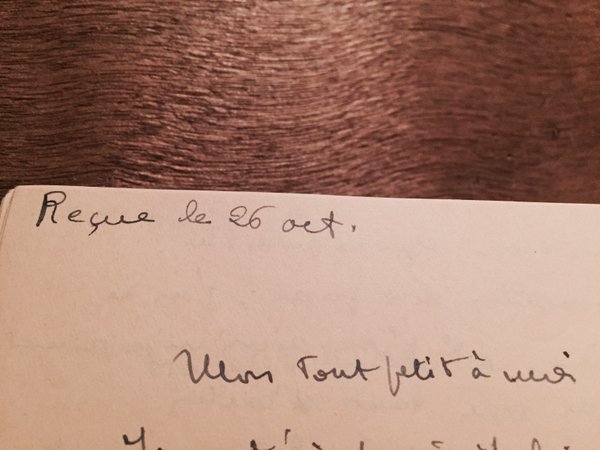 Reçue le 26 oct.
Mon tout petit à moi